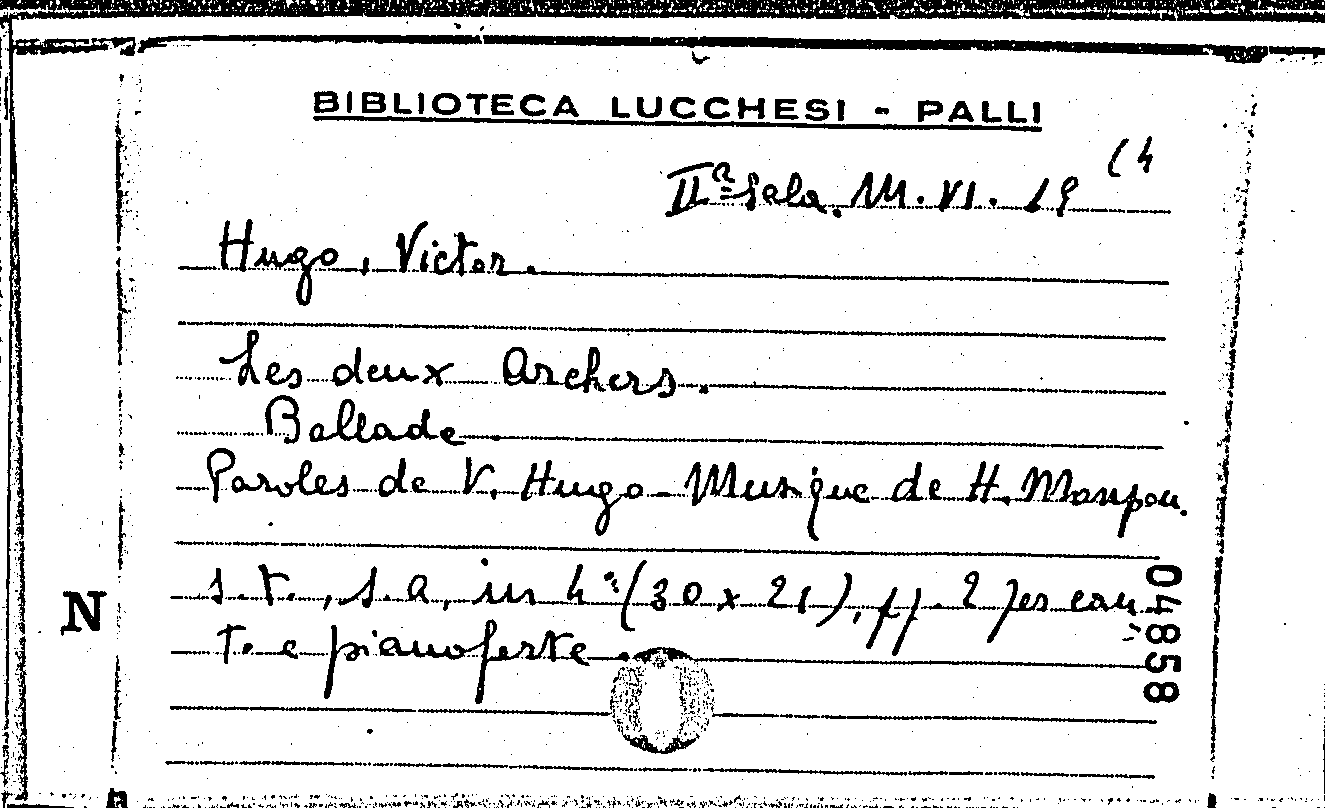 BIBLIOTECA LUCCHESI - PALLI
IIª Sala. M. VI. 19 (4
Hugo, Victor.
Les deux Archers.
Ballade
Paroles de V. Hugo - Musique de H. Monpou.
s.t., s.a, in 4º (30 x 21), ff. 2 per can-
to e pianoforte.
N
04858